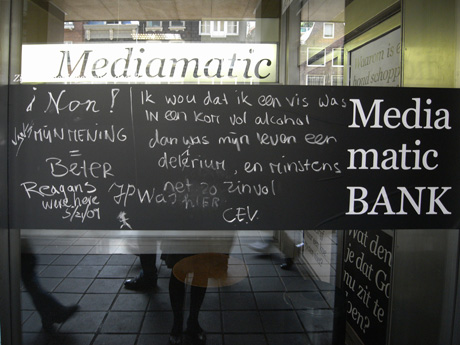 Mediamatic
¡Non!
MIJN MENING
=
BETER
Reagans
were here
5/21/07
JP Was HIER
IK WOU dat ik een vis was
IN een KOM vol alcohol
dan was mijn leven een
delerium, en minstens
net zo zinvol
C.E.V.
Media
matic
BANK
Waarom is e
hond schopp
Wat den
je dat Go
nu zit te
oen?